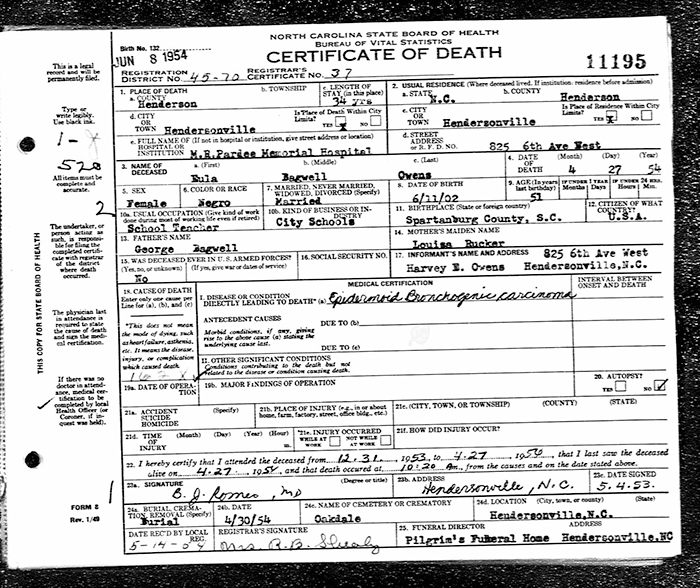 NORTH CAROLINA STATE BOARD OF HEALTH
BUREAU OF VITAL STATISTICS
CERTIFICATE OF DEATH
Birth No. 132
JUN 8 1954
11195
REGISTRATION DISTRICT NO. 45-70 REGISTRAR'S CERTIFICATE NO. 37
This is a legal record and will be permanently filed.
Type or write legibly. Use black ink.
1-X
528
All items must be complete and accurate.
2
The undertaker, or person acting as such, is responsible for filing the completed certificate with registrar of the district where death occurred.
The physician last in attendance is required to state the cause of death and sign the medical certification.
If there was no doctor in attendance, medical certification to be completed by local Health Officer (or Coroner, if inquest was held).
THIS COPY FOR STATE BOARD OF HEALTH
FORM 8
Rev. 1/49
1
1. PLACE OF DEATH
a. COUNTY Henderson
b. TOWNSHIP
c. LENGTH OF STAY (in this place) 34 yrs
2. USUAL RESIDENCE (Where deceased lived. If institution: residence before admission)
a. STATE N.C.
b. COUNTY Henderson
d. CITY OR TOWN Hendersonville
Is Place of Death Within City Limits? YES X NO
c. CITY OR TOWN Hendersonville
Is Place of Residence Within City Limits? YES X NO
e. FULL NAME OF (If not in hospital or institution, give street address or location) HOSPITAL OR INSTITUTION M.R.Pardee Memorial Hospital
d. STREET ADDRESS OR R. F. D. NO. 825 6th Ave West
3. NAME OF DECEASED
a. (First) Eula
b. (Middle) Bagwell
c. (Last) Owens
4. DATE OF DEATH (Month) (Day) (Year) 4 27 54
5. SEX Female
6. COLOR OR RACE Negro
7. MARRIED, NEVER MARRIED, WIDOWED, DIVORCED (Specify) Married
8. DATE OF BIRTH 6/11/02
9. AGE (In years last birthday) 51
IF UNDER 1 YEAR Months Days
IF UNDER 24 HRS. Hours Min.
10a. USUAL OCCUPATION (Give kind of work done during most of working life even if retired) School Teacher
10b. KIND OF BUSINESS OR INDUSTRY City Schools
11. BIRTHPLACE (State or foreign country) Spartanburg County, S.C.
12. CITIZEN OF WHAT COUNTRY? U.S.A.
13. FATHER'S NAME George Bagwell
14. MOTHER'S MAIDEN NAME Louisa Rucker
15. WAS DECEASED EVER IN U.S. ARMED FORCES? (Yes, no, or unknown) (If yes, give war or dates of service) No
16. SOCIAL SECURITY NO.
17. INFORMANT'S NAME AND ADDRESS 825 6th Ave West
Harvey E. Owens Hendersonville,N.C.
18. CAUSE OF DEATH
Enter only one cause per line for (a), (b), and (c)
*This does not mean the mode of dying, such as heart failure, asthenia, etc. It means the disease, injury, or complication which caused death.
MEDICAL CERTIFICATION
INTERVAL BETWEEN ONSET AND DEATH
I. DISEASE OR CONDITION DIRECTLY LEADING TO DEATH* (a) Epidermoid Bronchogenic carcinoma
ANTECEDENT CAUSES
Morbid conditions, if any, giving rise to the above cause (a) stating the underlying cause last.
DUE TO (b)
DUE TO (c)
II. OTHER SIGNIFICANT CONDITIONS
Conditions contributing to the death but not related to the disease or condition causing death.
19a. DATE OF OPERATION
19b. MAJOR FINDINGS OF OPERATION
20. AUTOPSY? YES NO ✓
21a. ACCIDENT SUICIDE HOMICIDE (Specify)
21b. PLACE OF INJURY (e.g., in or about home, farm, factory, street, office bldg., etc.)
21c. (CITY, TOWN, OR TOWNSHIP) (COUNTY) (STATE)
21d. TIME OF INJURY (Month) (Day) (Year) (Hour) m.
21e. INJURY OCCURRED WHILE AT WORK NOT WHILE AT WORK
21f. HOW DID INJURY OCCUR?
22. I hereby certify that I attended the deceased from 12.31, 1953, to 4.27, 1954, that I last saw the deceased
alive on 4.27, 1954, and that death occurred at 10:20 Am., from the causes and on the date stated above.
23a. SIGNATURE (Degree or title) B. J. Romeo, MD
23b. ADDRESS Hendersonville, N.C.
23c. DATE SIGNED 5.4.53.
24a. BURIAL, CREMATION, REMOVAL (Specify) Burial
24b. DATE 4/30/54
24c. NAME OF CEMETERY OR CREMATORY Oakdale
24d. LOCATION (City, town, or county) (State) Hendersonville,N.C.
DATE REC'D BY LOCAL REG. 5-14-54
REGISTRAR'S SIGNATURE Mrs. R.B. Shealy
25. FUNERAL DIRECTOR Pilgrim's Funeral Home Hendersonville,NC